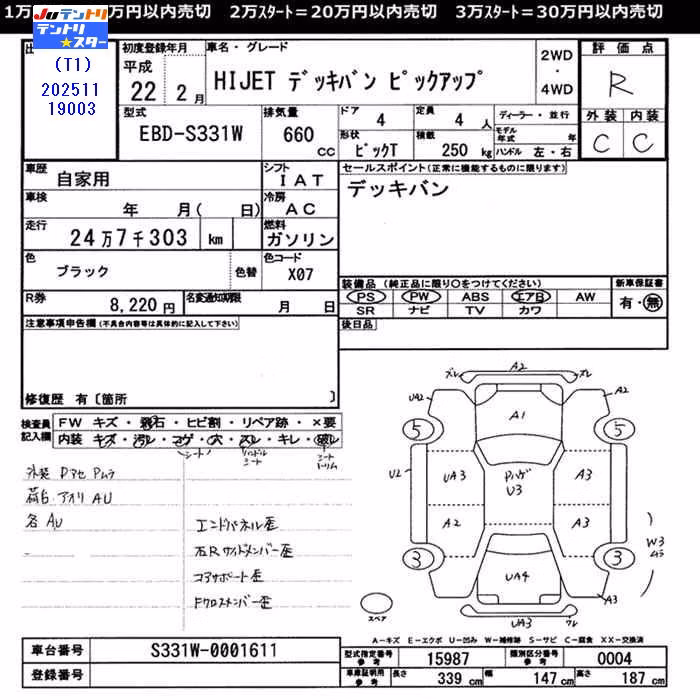 1万 万円以内売切 2万ｽﾀｰﾄ＝20万円以内売切 3万ｽﾀｰﾄ＝30万円以内売切
JUテントリ
テントリ★スター
(T1)
202511
19003
出
初度登録年月
平成
22 2月
車名・グレード
HIJET デッキバン ピックアップ
2WD
・
4WD
評価点
R
型式
EBD-S331W
排気量
660 cc
ドア
4
定員
4 人
ディーラー・並行
形状
ピックT
積載
250 kg
モデル年式 年
ハンドル 左・右
外装 内装
C C
車歴
自家用
シフト
IAT
セールスポイント(正常に機能するものに限ります)
デッキバン
車検
年 月( 日)
冷房
AC
走行
24万7千303 km
燃料
ガソリン
色
ブラック
色替
色コード
X07
R券
8,220円
名変通知期限
月 日
装備品(純正品に限り○をつけてください)
PS PW ABS エアB AW
SR ナビ TV カワ
新車保証書
有・無
注意事項申告欄(不具合内容等は具体的に記入して下さい)
後日品
修復歴 有〔箇所 〕
検査員記入欄
FW キズ・飛石・ヒビ割・リペア跡・×要
内装 キズ・汚れ・コゲ・穴・スレ・キレ・破レ
シート
ハンドル
シート
シート
トリム
外装 Dアセ Pムラ
荷台、アオリ AU
各AU
エンドパネル歪
左Rサイドメンバー歪
コアサポート歪
Fクロスメンバー歪
ズレ A2 ズレ
UA2 A2
A1
5 5
U2 UA3 Pハゲ A3
U3
A2 A3
3 3
W3
ムラ
UA4
A3
スペア
UA3 ワレ
A－キズ E－エクボ U－凹み W－補修跡 S－サビ C－腐食 XX－交換済
車台番号
S331W-0001611
登録番号
型式指定番号 参考
15987
類別区分番号 参考
0004
車庫証明用 参考
長さ 339 cm
幅 147 cm
高さ 187 cm